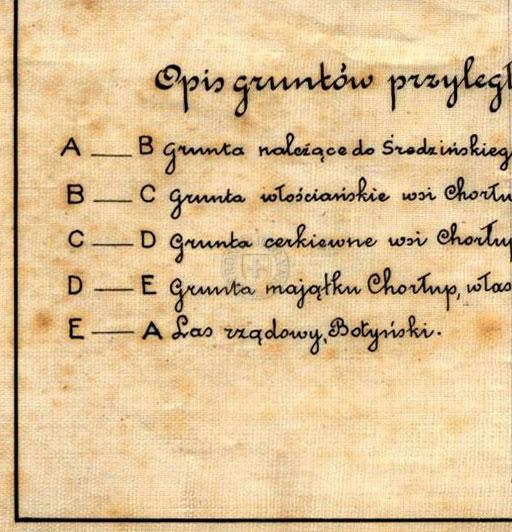 Opis gruntów przyległ
A — B Grunta należące do Średzińskieg
B — C Grunta włościańskie wsi Chorłu
C — D Grunta cerkiewne wsi Chorłup
D — E Grunta majątku Chorłup, włas
E — A Las rządowy, Botyński.